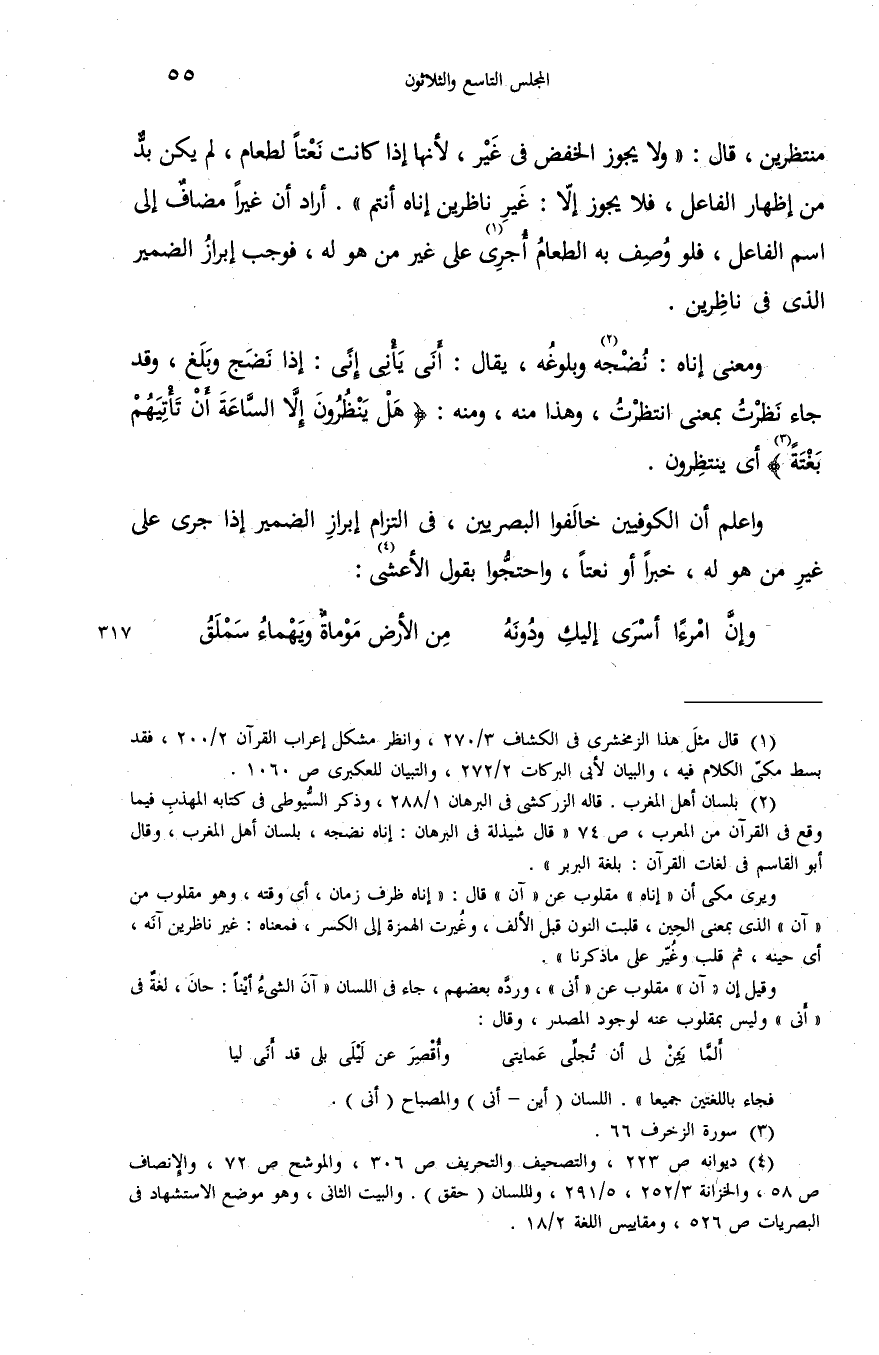 المجلس التاسع والثلاثون ٥٥
منتظرين ، قال : « ولا يجوز الخفض فى غَيْر ، لأنها إذا كانت نَعْتاً لطعام ، لم يكن بدٌّ
من إظهار الفاعل ، فلا يجوز إلّا : غَيرِ ناظرين إناه أنتم » . أراد أن غيراً مضافٌ إلى
اسم الفاعل ، فلو وُصِف به الطعامُ أُجرِى(١) على غير من هو له ، فوجب إبرازُ الضمير
الذى فى ناظِرين .
ومعنى إناه : نُضْجُه(٢) وبلوغُه ، يقال : أَنَى يَأْنِى إنًى : إذا نَضَج وبَلَغ ، وقد
جاء نَظَرْتُ بمعنى انتظرْتُ ، وهذا منه ، ومنه : ﴿ هَلْ يَنْظُرُونَ إِلَّا السَّاعَةَ أَنْ تَأْتِيَهُمْ
بَغْتَةً ﴾(٣) أى ينتظِرون .
واعلم أن الكوفيين خالَفوا البصريين ، فى التزام إبرازِ الضمير إذا جرى على
غيرِ من هو له ، خبراً أو نعتاً ، واحتجُّوا بقول الأعشى(٤) :
وإنَّ امْرءًا أسْرَى إليكِ ودُونَهُ مِن الأرض مَوْماةٌ ويَهْماءُ سَمْلَقُ ٣١٧
(١) قال مثلَ هذا الزمخشرى فى الكشاف ٢٧٠/٣ ، وانظر مشكل إعراب القرآن ٢٠٠/٢ ، فقد
بسط مكىّ الكلام فيه ، والبيان لأبى البركات ٢٧٢/٢ ، والتبيان للعكبرى ص ١٠٦٠ .
(٢) بلسان أهل المغرب . قاله الزركشى فى البرهان ٢٨٨/١ ، وذكر السُّيوطى فى كتابه المهذب فيما
وقع فى القرآن من المعرب ، ص ٧٤ « قال شيذلة فى البرهان : إناه نضجه ، بلسان أهل المغرب ، وقال
أبو القاسم فى لغات القرآن : بلغة البربر » .
ويرى مكى أن « إناه » مقلوب عن « آن » قال : « إناه ظرف زمان ، أى وقته ، وهو مقلوب من
« آن » الذى بمعنى الحِين ، قلبت النون قبل الألف ، وغُيرت الهمزة إلى الكسر ، فمعناه : غير ناظرين آنَه ،
أى حينه ، ثم قلب وغُيِّر على ماذكرنا » .
وقيل إن « آن » مقلوب عن « أنى » ، وردَّه بعضهم ، جاء فى اللسان « آنَ الشىءُ أيْناً : حانَ ، لغةٌ فى
« أَنى » وليس بمقلوب عنه لوجود المصدر ، وقال :
أَلمَّا يَئِنْ لى أن تُجلَّى عَمايتى وأُقْصِرَ عن لَيْلَى بلى قد أَنَى ليا
فجاء باللغتين جميعا » . اللسان ( أين – أنى ) والمصباح ( أنى ) .
(٣) سورة الزخرف ٦٦ .
(٤) ديوانه ص ٢٢٣ ، والتصحيف والتحريف ص ٣٠٦ ، والموشح ص ٧٢ ، والإنصاف
ص ٥٨ ، والخزانة ٢٥٢/٣ ، ٢٩١/٥ ، وللسان ( حقق ) . والبيت الثانى ، وهو موضع الاستشهاد فى
البصريات ص ٥٢٦ ، ومقاييس اللغة ١٨/٢ .